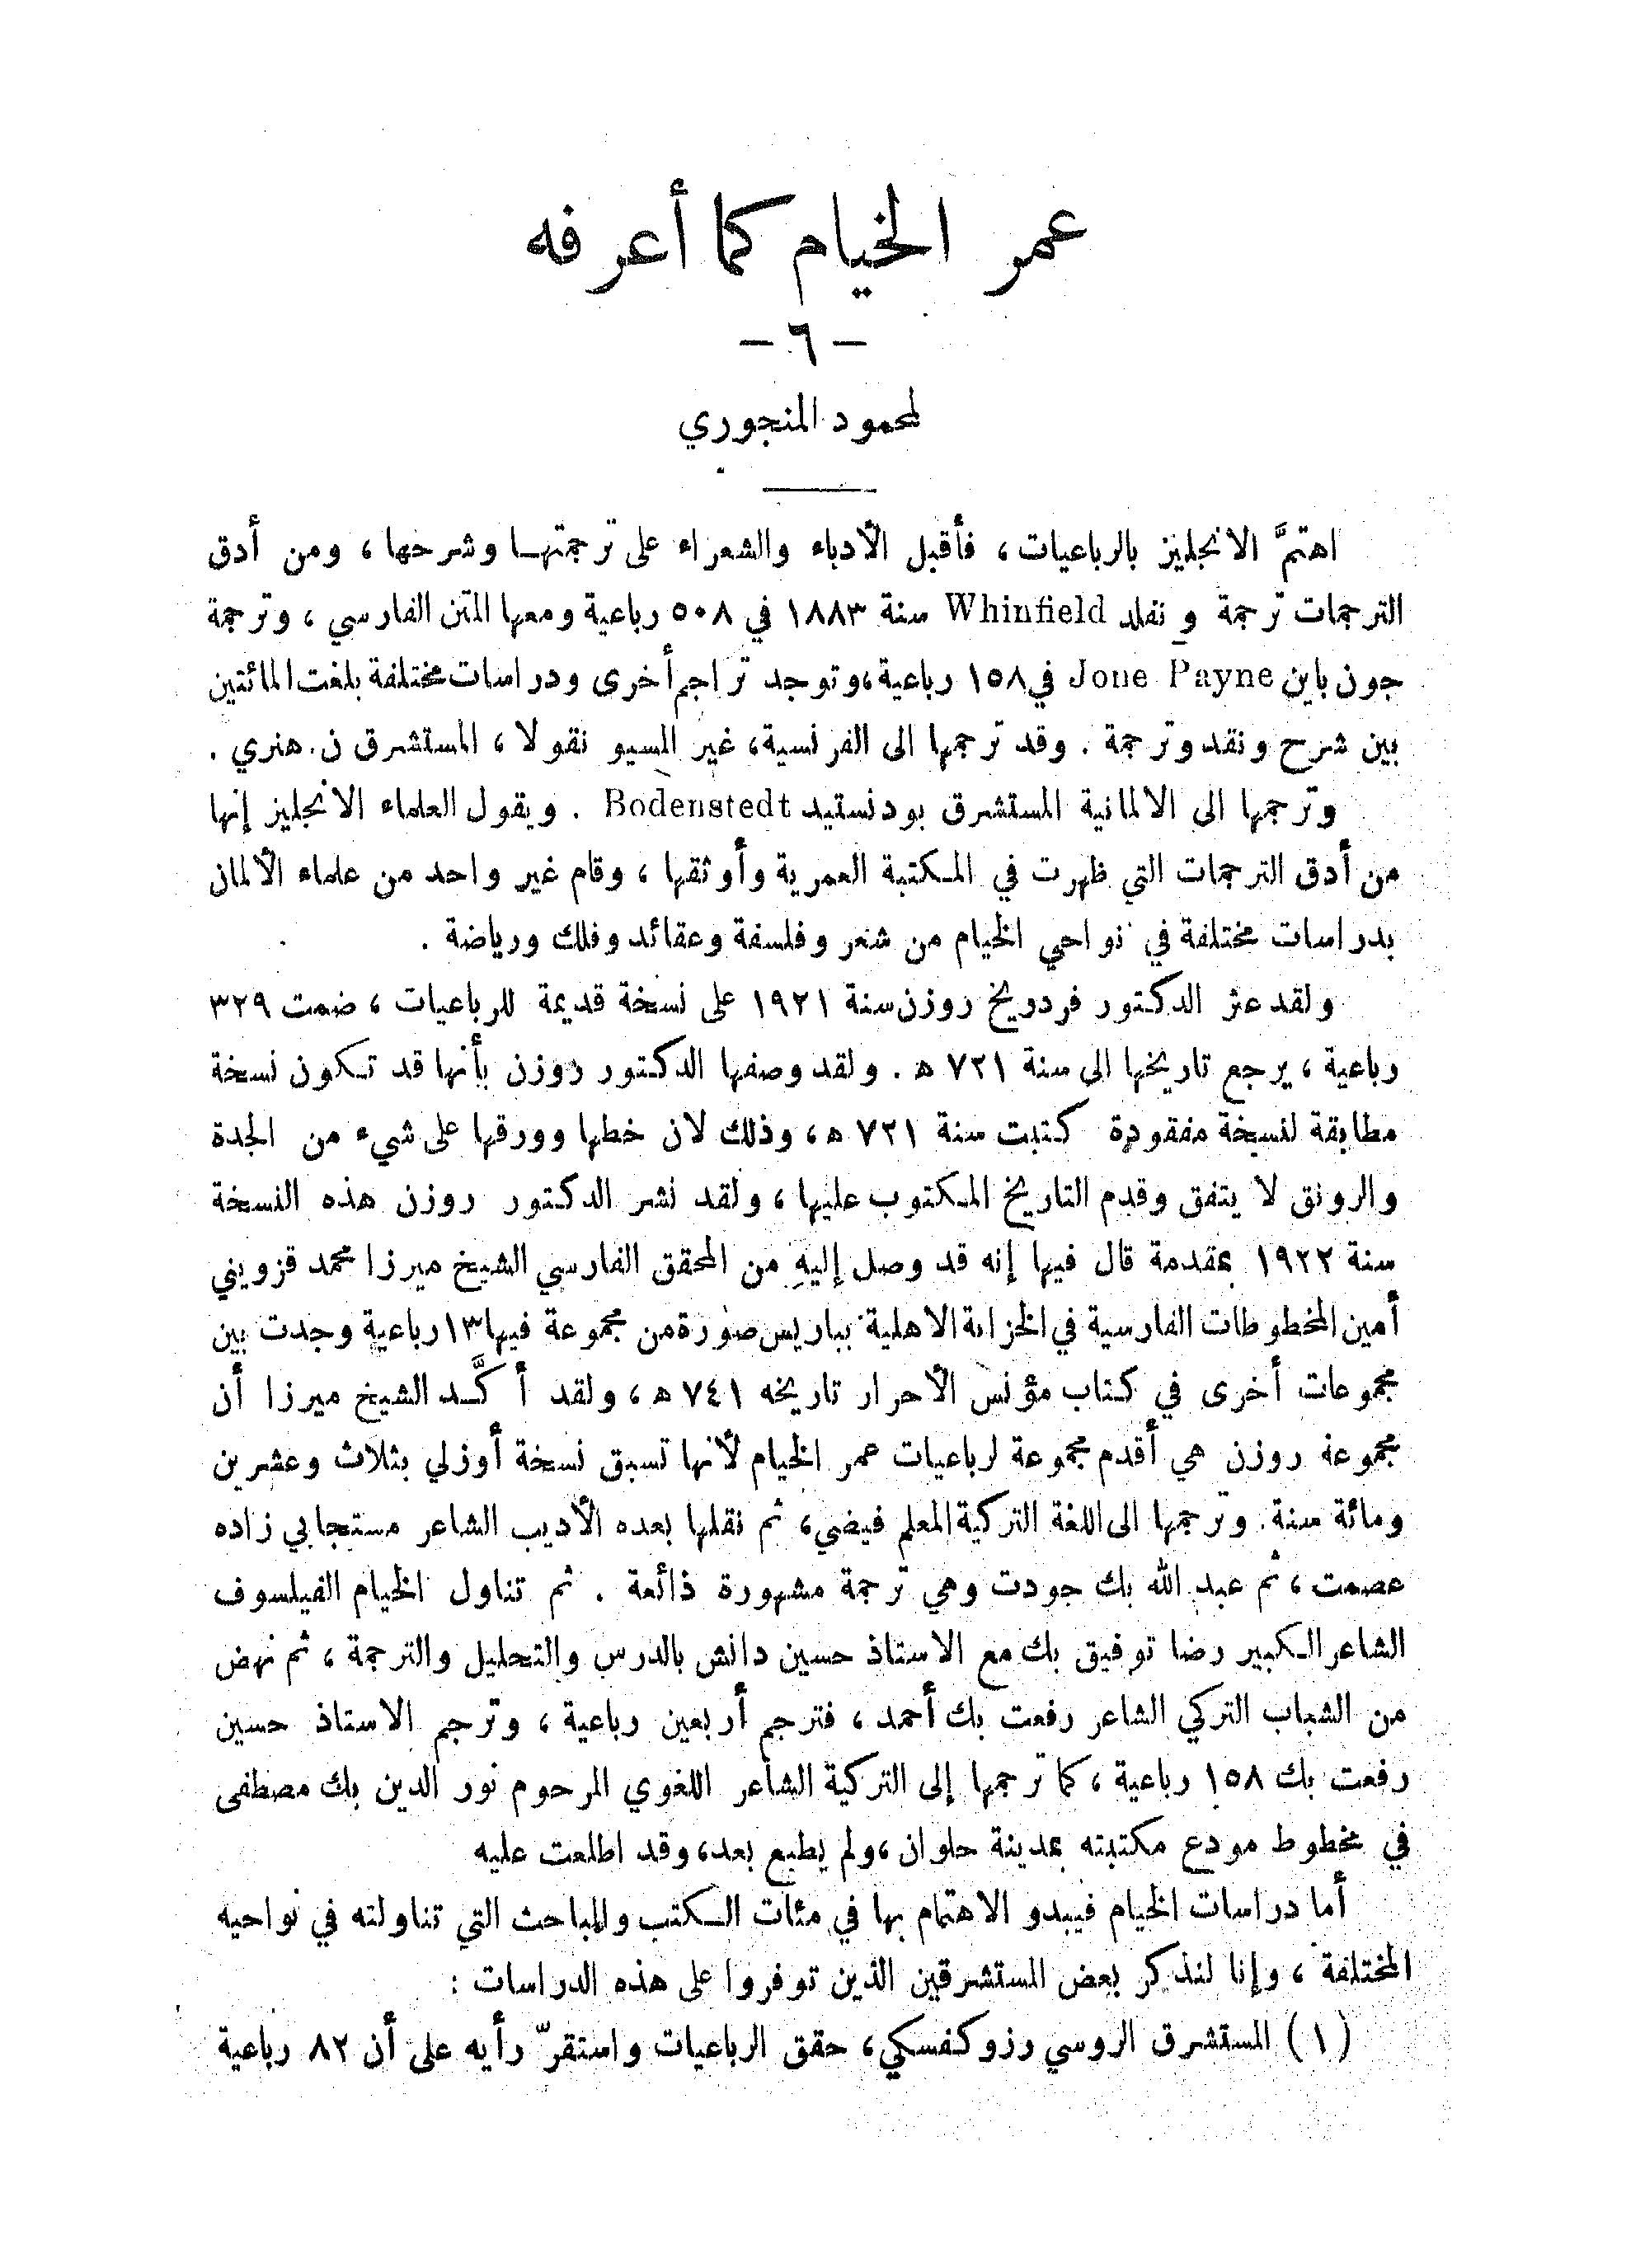 عمر الخيام كما أعرفه
– ٦ –
لمحمود المنجوري
اهتمَّ الانجليز بالرباعيات ، فأقبل الأدباء والشعراء على ترجمتهـا وشرحها ، ومن أدق
الترجمات ترجمة ونفلد Whinfield سنة ١٨٨٣ في ٥٠٨ رباعية ومعها المتن الفارسي ، وترجمة
جون باين Jone Payne في ١٥٨ رباعية ، وتوجد تراجم أخرى ودراسات مختلفة بلغت المائتين
بين شرح ونقد وترجمة . وقد ترجمها الى الفرنسية ، غير المسيو نقولا ، المستشرق ن. هنري .
وترجمها الى الالمانية المستشرق بودنستيد Bodenstedt . ويقول العلماء الانجليز إنها
من أدق الترجمات التي ظهرت في المـكتبة العمرية وأوثقها ، وقام غير واحد من علماء الألمان
بدراسات مختلفة في نواحي الخيام من شعر وفلسفة وعقائد وفلك ورياضة .
ولقد عثر الدكتور فردريخ روزن سنة ١٩٢١ على نسخة قديمة للرباعيات ، ضمت ٣٢٩
رباعية ، يرجع تاريخها الى سنة ٧٢١ ه . ولقد وصفها الدكتور روزن بأنها قد تـكون نسخة
مطابقة لنسخة مفقودة كتبت سنة ٧٢١ ه ، وذلك لان خطها وورقها على شيء من الجدة
والرونق لا يتفق وقدم التاريخ المـكتوب عليها ، ولقد نشر الدكتور روزن هذه النسخة
سنة ١٩٢٢ بمقدمة قال فيها إنه قد وصل إليهِ من المحقق الفارسي الشيخ ميرزا محمد قزويني
أمين المخطوطات الفارسية في الخزانة الاهلية بباريس صورة من مجموعة فيها ١٣ رباعية وجدت بين
مجموعات أخرى في كتاب مؤنس الأحرار تاريخه ٧٤١ ه ، ولقد أكَّـد الشيخ ميرزا أن
مجموعة روزن هي أقدم مجموعة لرباعيات عمر الخيام لأنها تسبق نسخة أوزلي بثلاث وعشرين
ومائة سنة . وترجمها الى اللغة التركية المعلم فيضي ، ثم نقلها بعده الأديب الشاعر مستجابي زاده
عصمت ، ثم عبد الله بك جودت وهي ترجمة مشهورة ذائعة . ثم تناول الخيام الفيلسوف
الشاعر الـكبير رضا توفيق بك مع الاستاذ حسين دانش بالدرس والتحليل والترجمة ، ثم نهض
من الشباب التركي الشاعر رفعت بك أحمد ، فترجم أربعين رباعية ، وترجم الاستاذ حسين
رفعت بك ١٥٨ رباعية ، كما ترجمها إلى التركية الشاعر اللغوي المرحوم نور الدين بك مصطفى
في مخطوط مودع مكتبته بمدينة حلوان ، ولم يطبع بعد ، وقد اطلعت عليه
أما دراسات الخيام فيبدو الاهتمام بها في مئات الـكتب والمباحث التي تناولته في نواحيه
المختلفة ، وإنا لنذكر بعض المستشرقين الذين توفروا على هذه الدراسات :
( ١ ) المستشرق الروسي رزوكفسكي ، حقق الرباعيات واستقرّ رأيه على أن ٨٢ رباعية